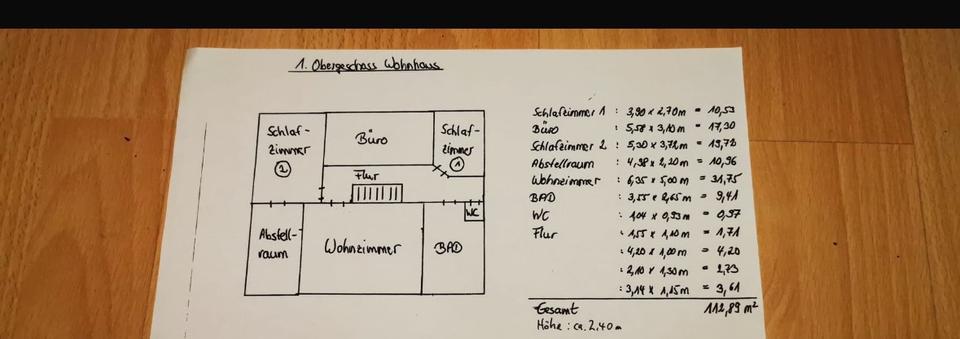 1. Obergeschoss Wohnhaus
Schlaf-
zimmer
2
Büro
Schlaf-
zimmer
1
Flur
WC
Abstell-
raum
Wohnzimmer
BAD
Schlafzimmer 1 : 3,90 x 2,70 m = 10,53
Büro : 5,58 x 3,10 m = 17,30
Schlafzimmer 2 : 5,30 x 3,72 m = 19,72
Abstellraum : 4,98 x 2,20 m = 10,96
Wohnzimmer : 6,35 x 5,00 m = 31,75
BAD : 3,55 x 2,65 m = 9,41
WC : 1,04 x 0,93 m = 0,97
Flur : 1,55 x 1,10 m = 1,71
: 4,20 x 1,00 m = 4,20
: 2,10 x 1,30 m = 2,73
: 3,14 x 1,15 m = 3,61
Gesamt 112,89 m²
Höhe : ca. 2,40 m